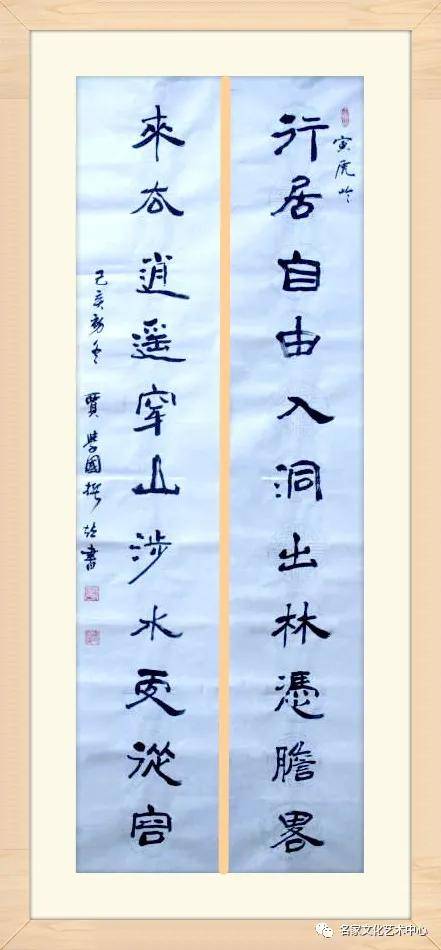 寅虎吟
行居自由入洞出林憑膽畧
來厺逍遥穿山涉水更從容
己亥初冬 賈學國撰竝書
名家文化艺术中心